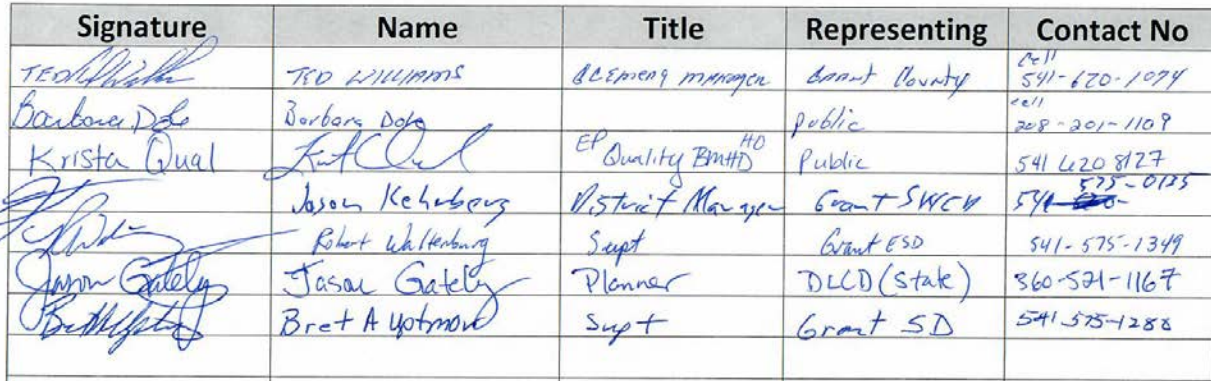 Signature Name Title Representing Contact No
TED Williams TED WILLIAMS manager Grant County cell 541-620-1074
Barbara Dole Barbara Dole public cell 208-201-1109
Krista Qual EP Quality BMHD HD Public 541 620 8127
Jason Kehrberg District Manager Grant SWCD 541 575-0135
Robert Waltenburg Supt Grant ESD 541-575-1349
Jason Gately Jason Gately Planner DLCD (State) 360-521-1167
Bret A Uptmor Supt Grant SD 541 575-1288